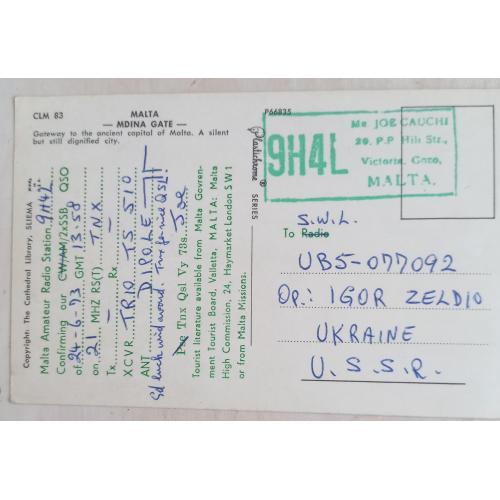 CLM 83
MALTA
— MDINA GATE —
Gateway to the ancient capital of Malta. A silent
but still dignified city.
Copyright: The Cathedral Library, SLIEMA
Malta Amateur Radio Station, 9H4L
Confirming our CW/AM/2xSSB QSO
of 24-6-73 GMT 13.58
on 21 MHZ RS(T) TNX
Tx. — Rx —
XCVR TRIO TS 510
ANT DIPOLE
Gd luck and Tnx for nice QSL!
Pse Tnx Qsl Vy 73s. Joe
Tourist literature available from Malta Govern-
ment Tourist Board, Valletta, MALTA: Malta
High Commission, 24, Haymarket London SW1
or from Malta Missions.
P66835
Plastichrome ® SERIES
9H4L
Mr JOE CAUCHI
29. P.P Hili Str.,
Victoria, Gozo,
MALTA.
S.W.L.
To Radio
UB5-077092
Op.: IGOR ZELDIO
UKRAINE
U.S.S.R.